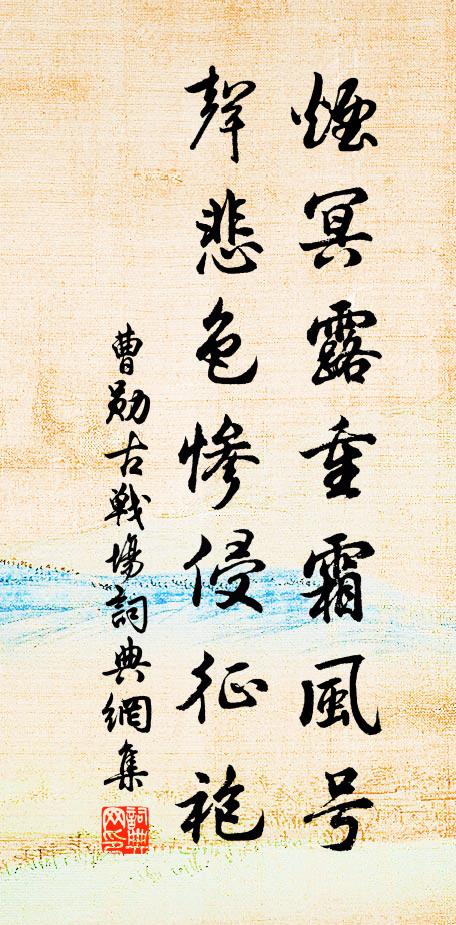 煙冥露重霜風号
聲悲色慘侵征袍
曹勛古戰場詞典網集
詞典网印